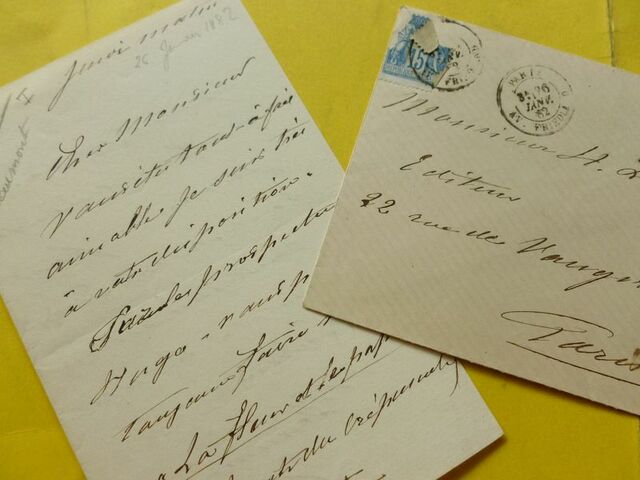 Jeudi matin
26 Janvier 1882
Cher Monsieur
Vous êtes tout-à-fait
aimable, je suis très
à votre disposition.
prospectus
Hugo - vous p
toujours faire
La Fleur et le pap
du crépuscule
15
PARIS
26
JANV.
82
AV. FRIEDLA
Monsieur H.
Editeur
22 rue de Vaugir
Paris